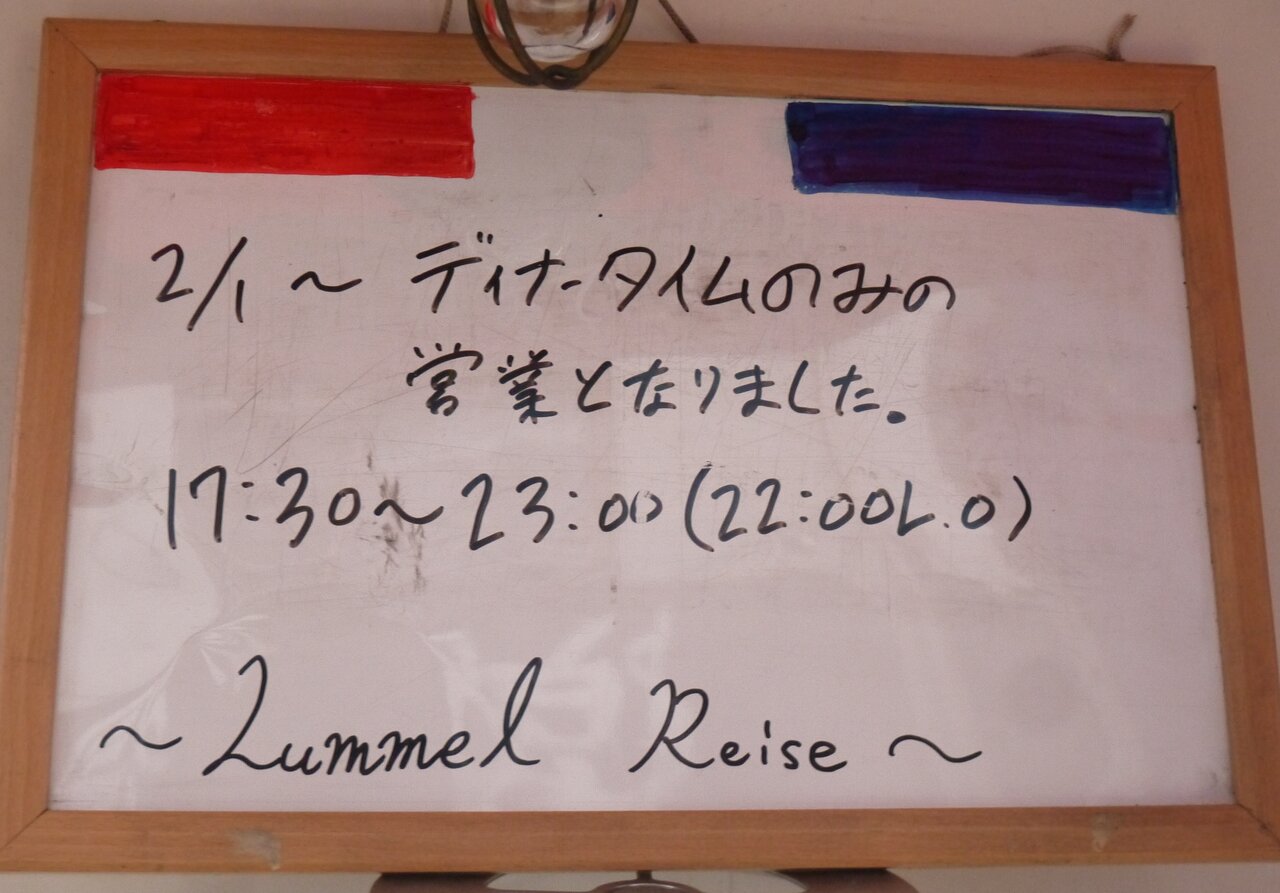 2/1 ～ ディナータイムのみの
営業となりました。
17:30～23:00(22:00L.O)
～Lummel Reise～